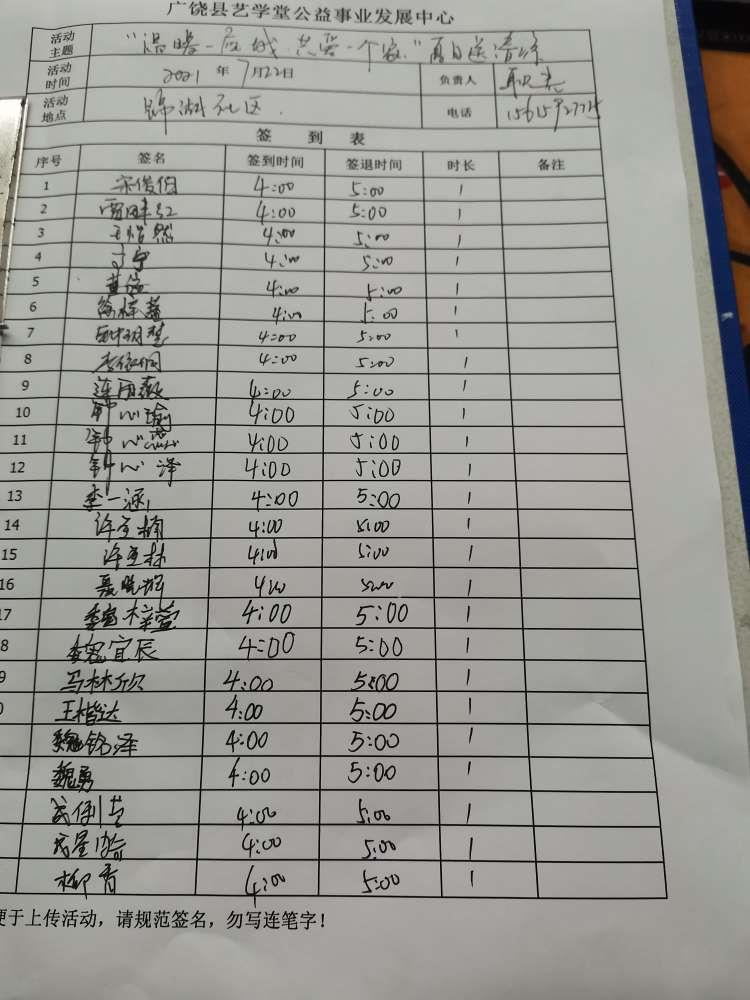 广饶县艺学堂公益事业发展中心
活动主题 "温暖一座城 共爱一个家" 夏日送清凉
活动时间 2021 年 7月22日 负责人
活动地点 锦湖社区 电话
签 到 表
序号 签名 签到时间 签退时间 时长 备注
1 宋俊伯 4:00 5:00 1
2 4:00 5:00 1
3 4:00 5:00 1
4 丁宁 4:00 5:00 1
5 4:00 5:00 1
6 4:00 5:00 1
7 4:00 5:00 1
8 4:00 5:00 1
9 4:00 5:00 1
10 钟心瑜 4:00 5:00 1
11 钟心蕊 4:00 5:00 1
12 钟心泽 4:00 5:00 1
13 李一涵 4:00 5:00 1
14 许宝楠 4:00 5:00 1
15 许宝林 4:00 5:00 1
16 聂晓辉 4:00 5:00 1
17 4:00 5:00 1
8 宜辰 4:00 5:00 1
9 马林欣 4:00 5:00 1
王楷达 4:00 5:00 1
魏铭泽 4:00 5:00 1
魏勇 4:00 5:00 1
4:00 5:00 1
4:00 5:00 1
柳青 4:00 5:00 1
便于上传活动，请规范签名，勿写连笔字！